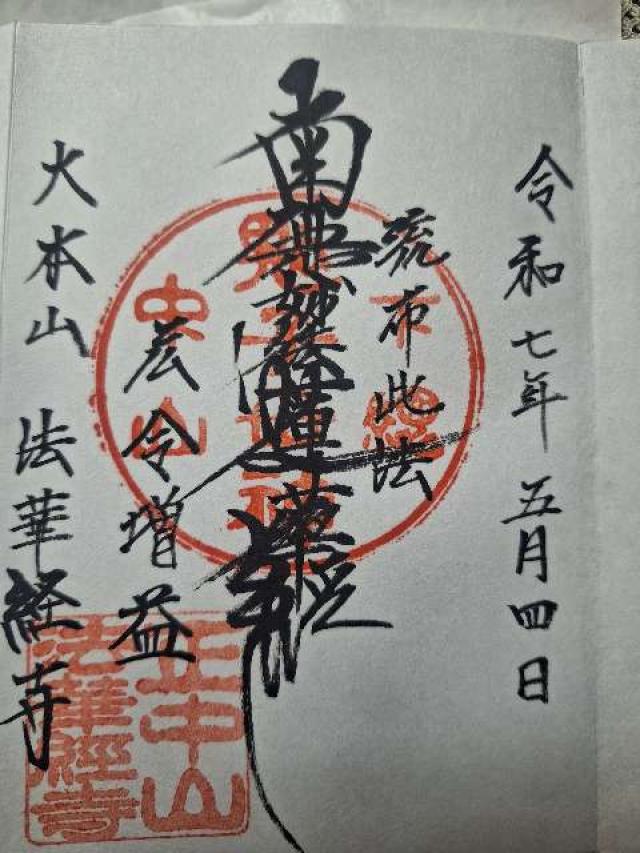 令和七年五月四日
流布此法
南無妙法蓮華経
広令増益
大本山 法華経寺
正中山
法華經寺